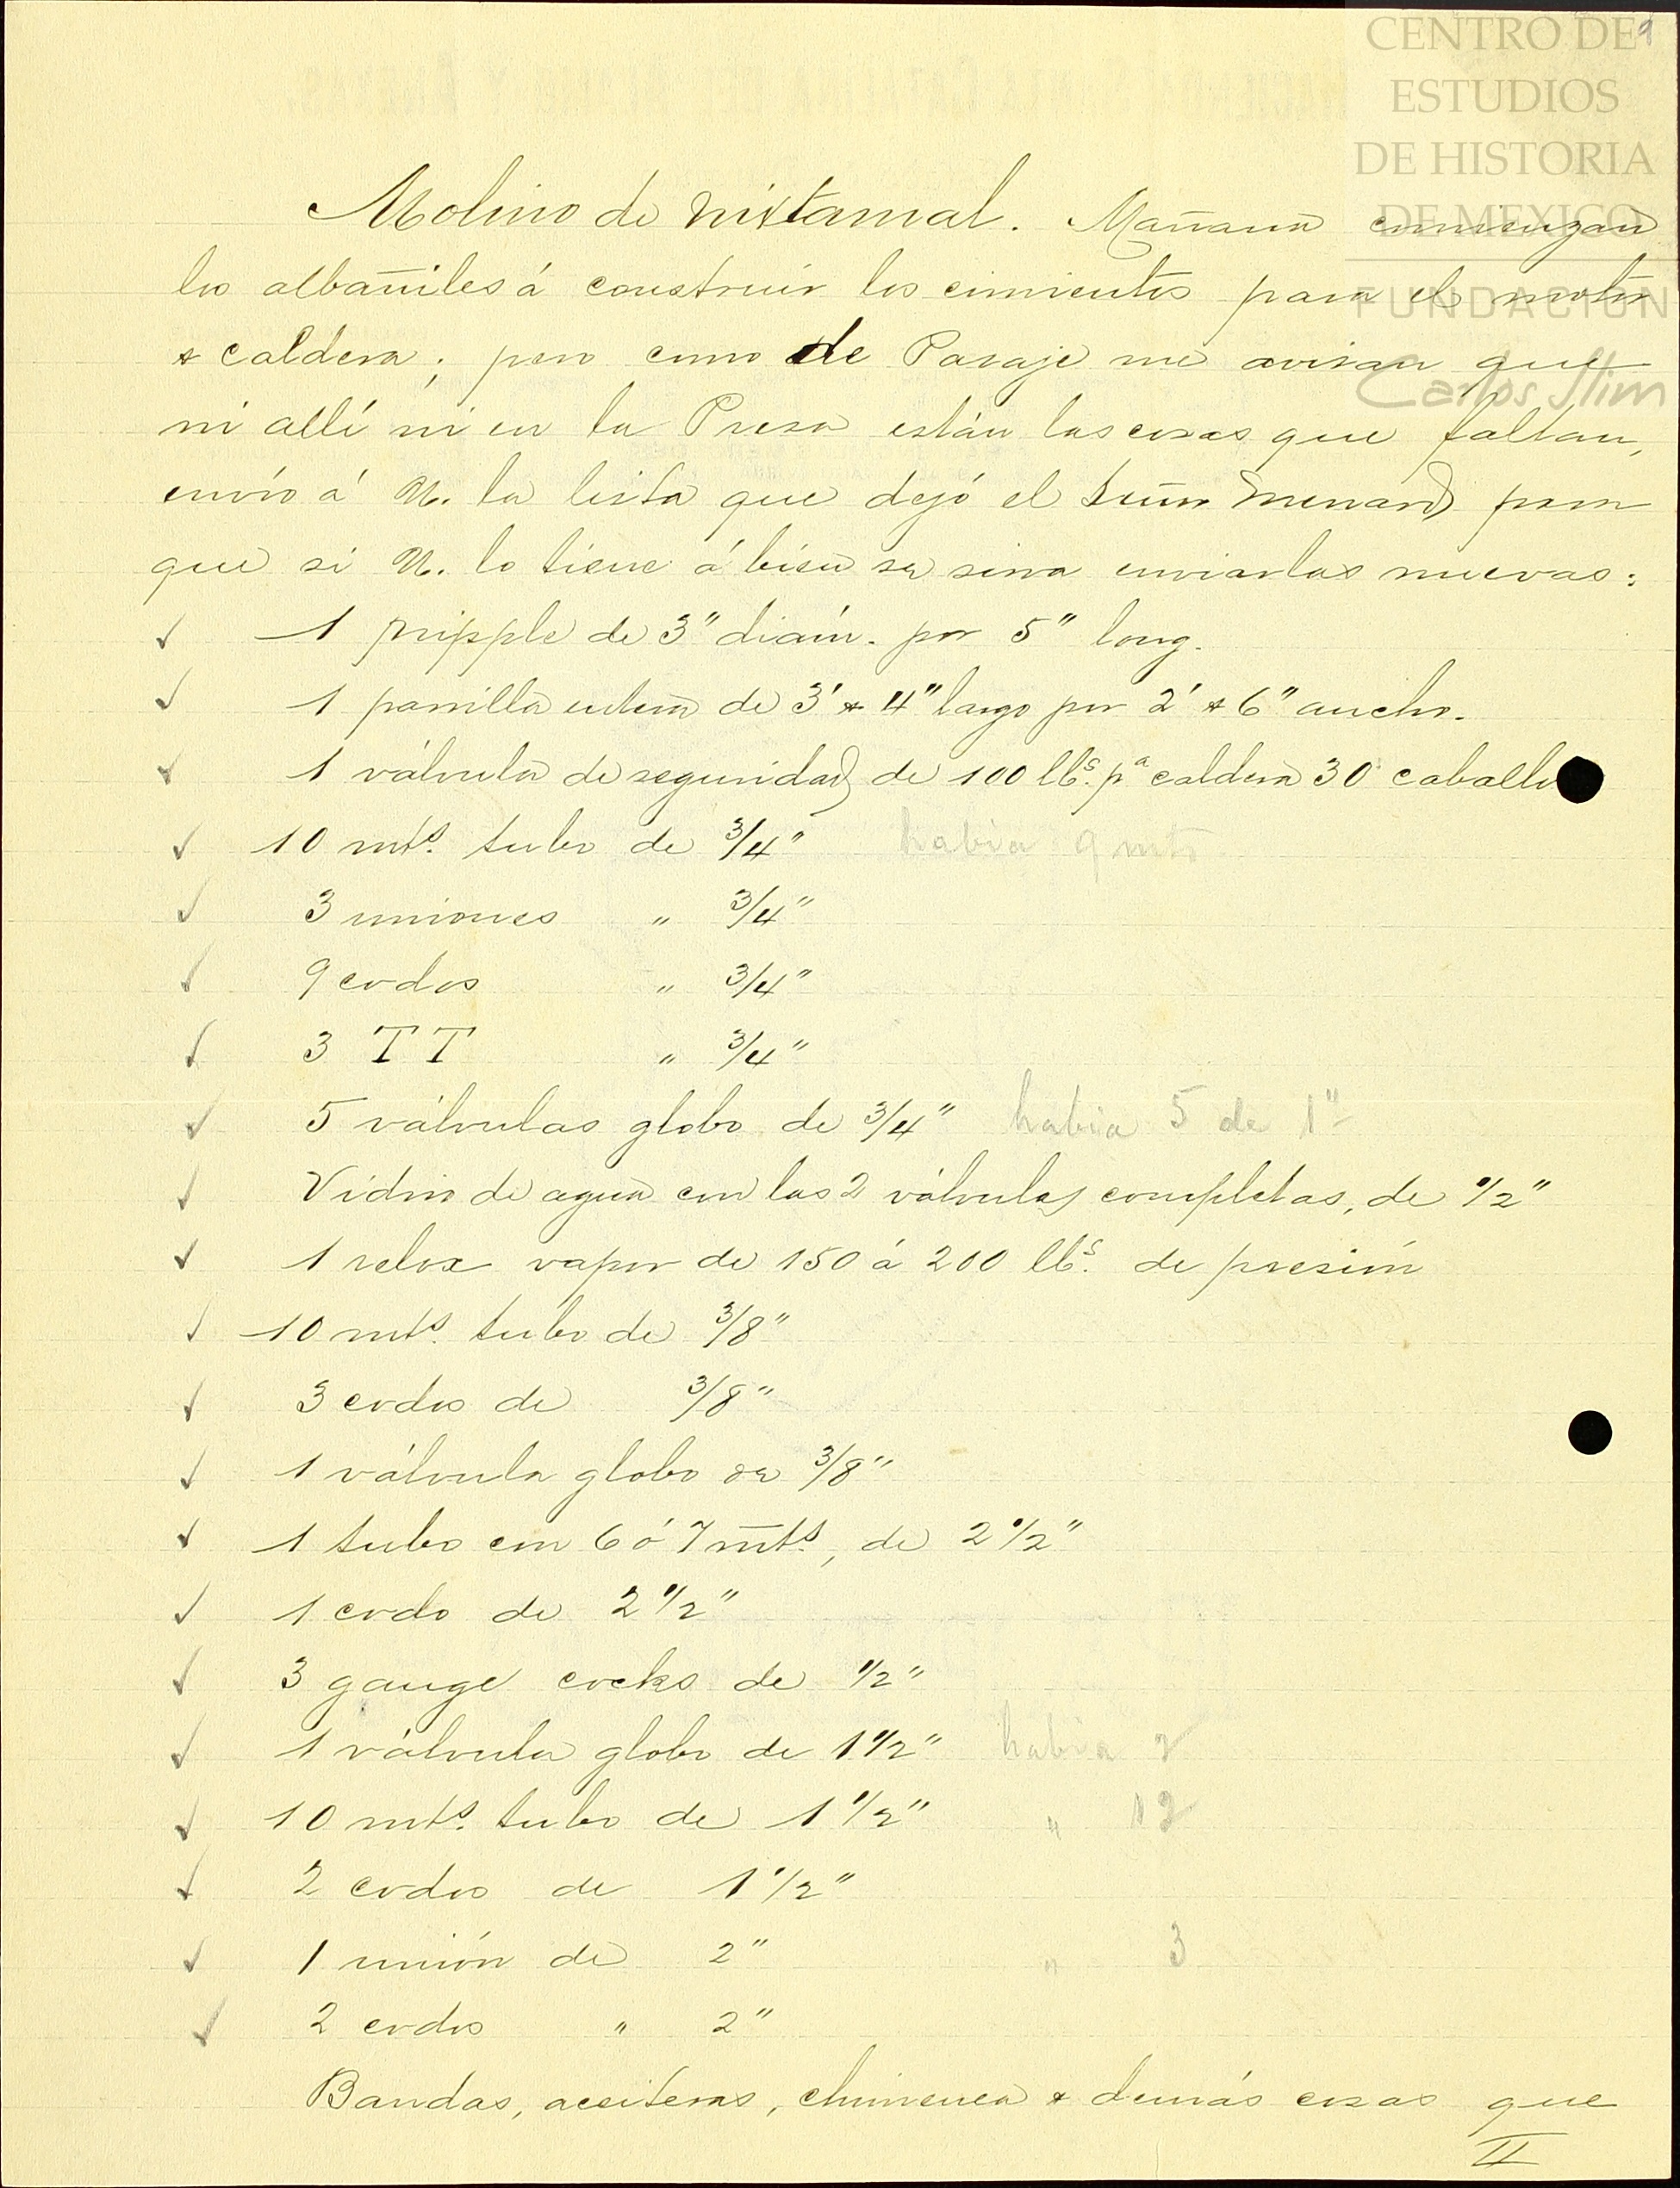 CENTRO DE
ESTUDIOS
DE HISTORIA
DE MEXICO
FUNDACIÓN
Carlos Slim
Molino de nixtamal. Mañana comienzan
los albañiles á construir los cimientos para el motor
& caldera; pero como de Pasaje me avisan que
ni allí ni en la Presa están las cosas que faltan,
envío á U. la lista que dejó el Señor Menard para
que si U. lo tiene á bien se sirva enviarlas nuevas:
✓ 1 nipple de 3" diám. por 5" long.
✓ 1 parrilla entera de 3' & 4" largo por 2' & 6" ancho.
✓ 1 válvula de seguridad de 100 lbs. pa caldera 30 caballos
✓ 10 mts. tubo de 3/4" había 9 mts
✓ 3 uniones " 3/4"
✓ 9 codos " 3/4"
✓ 3 TT " 3/4"
✓ 5 válvulas globo de 3/4" había 5 de 1"
✓ Vidrio de agua con las 2 válvulas completas, de 1/2"
✓ 1 relox vapor de 150 á 200 lbs. de presión
✓ 10 mts. tubo de 3/8"
✓ 3 codos de 3/8"
✓ 1 válvula globo de 3/8"
✓ 1 tubo con 6 ó 7 mts., de 2 1/2"
✓ 1 codo de 2 1/2"
✓ 3 gauge cocks de 1/2"
✓ 1 válvula globo de 1 1/2" había 2
✓ 10 mts. tubo de 1 1/2" " 12
✓ 2 codos de 1 1/2"
✓ 1 unión de 2" " 3
✓ 2 codos " 2"
Bandas, aceiteras, chimenea & demás cosas que
II